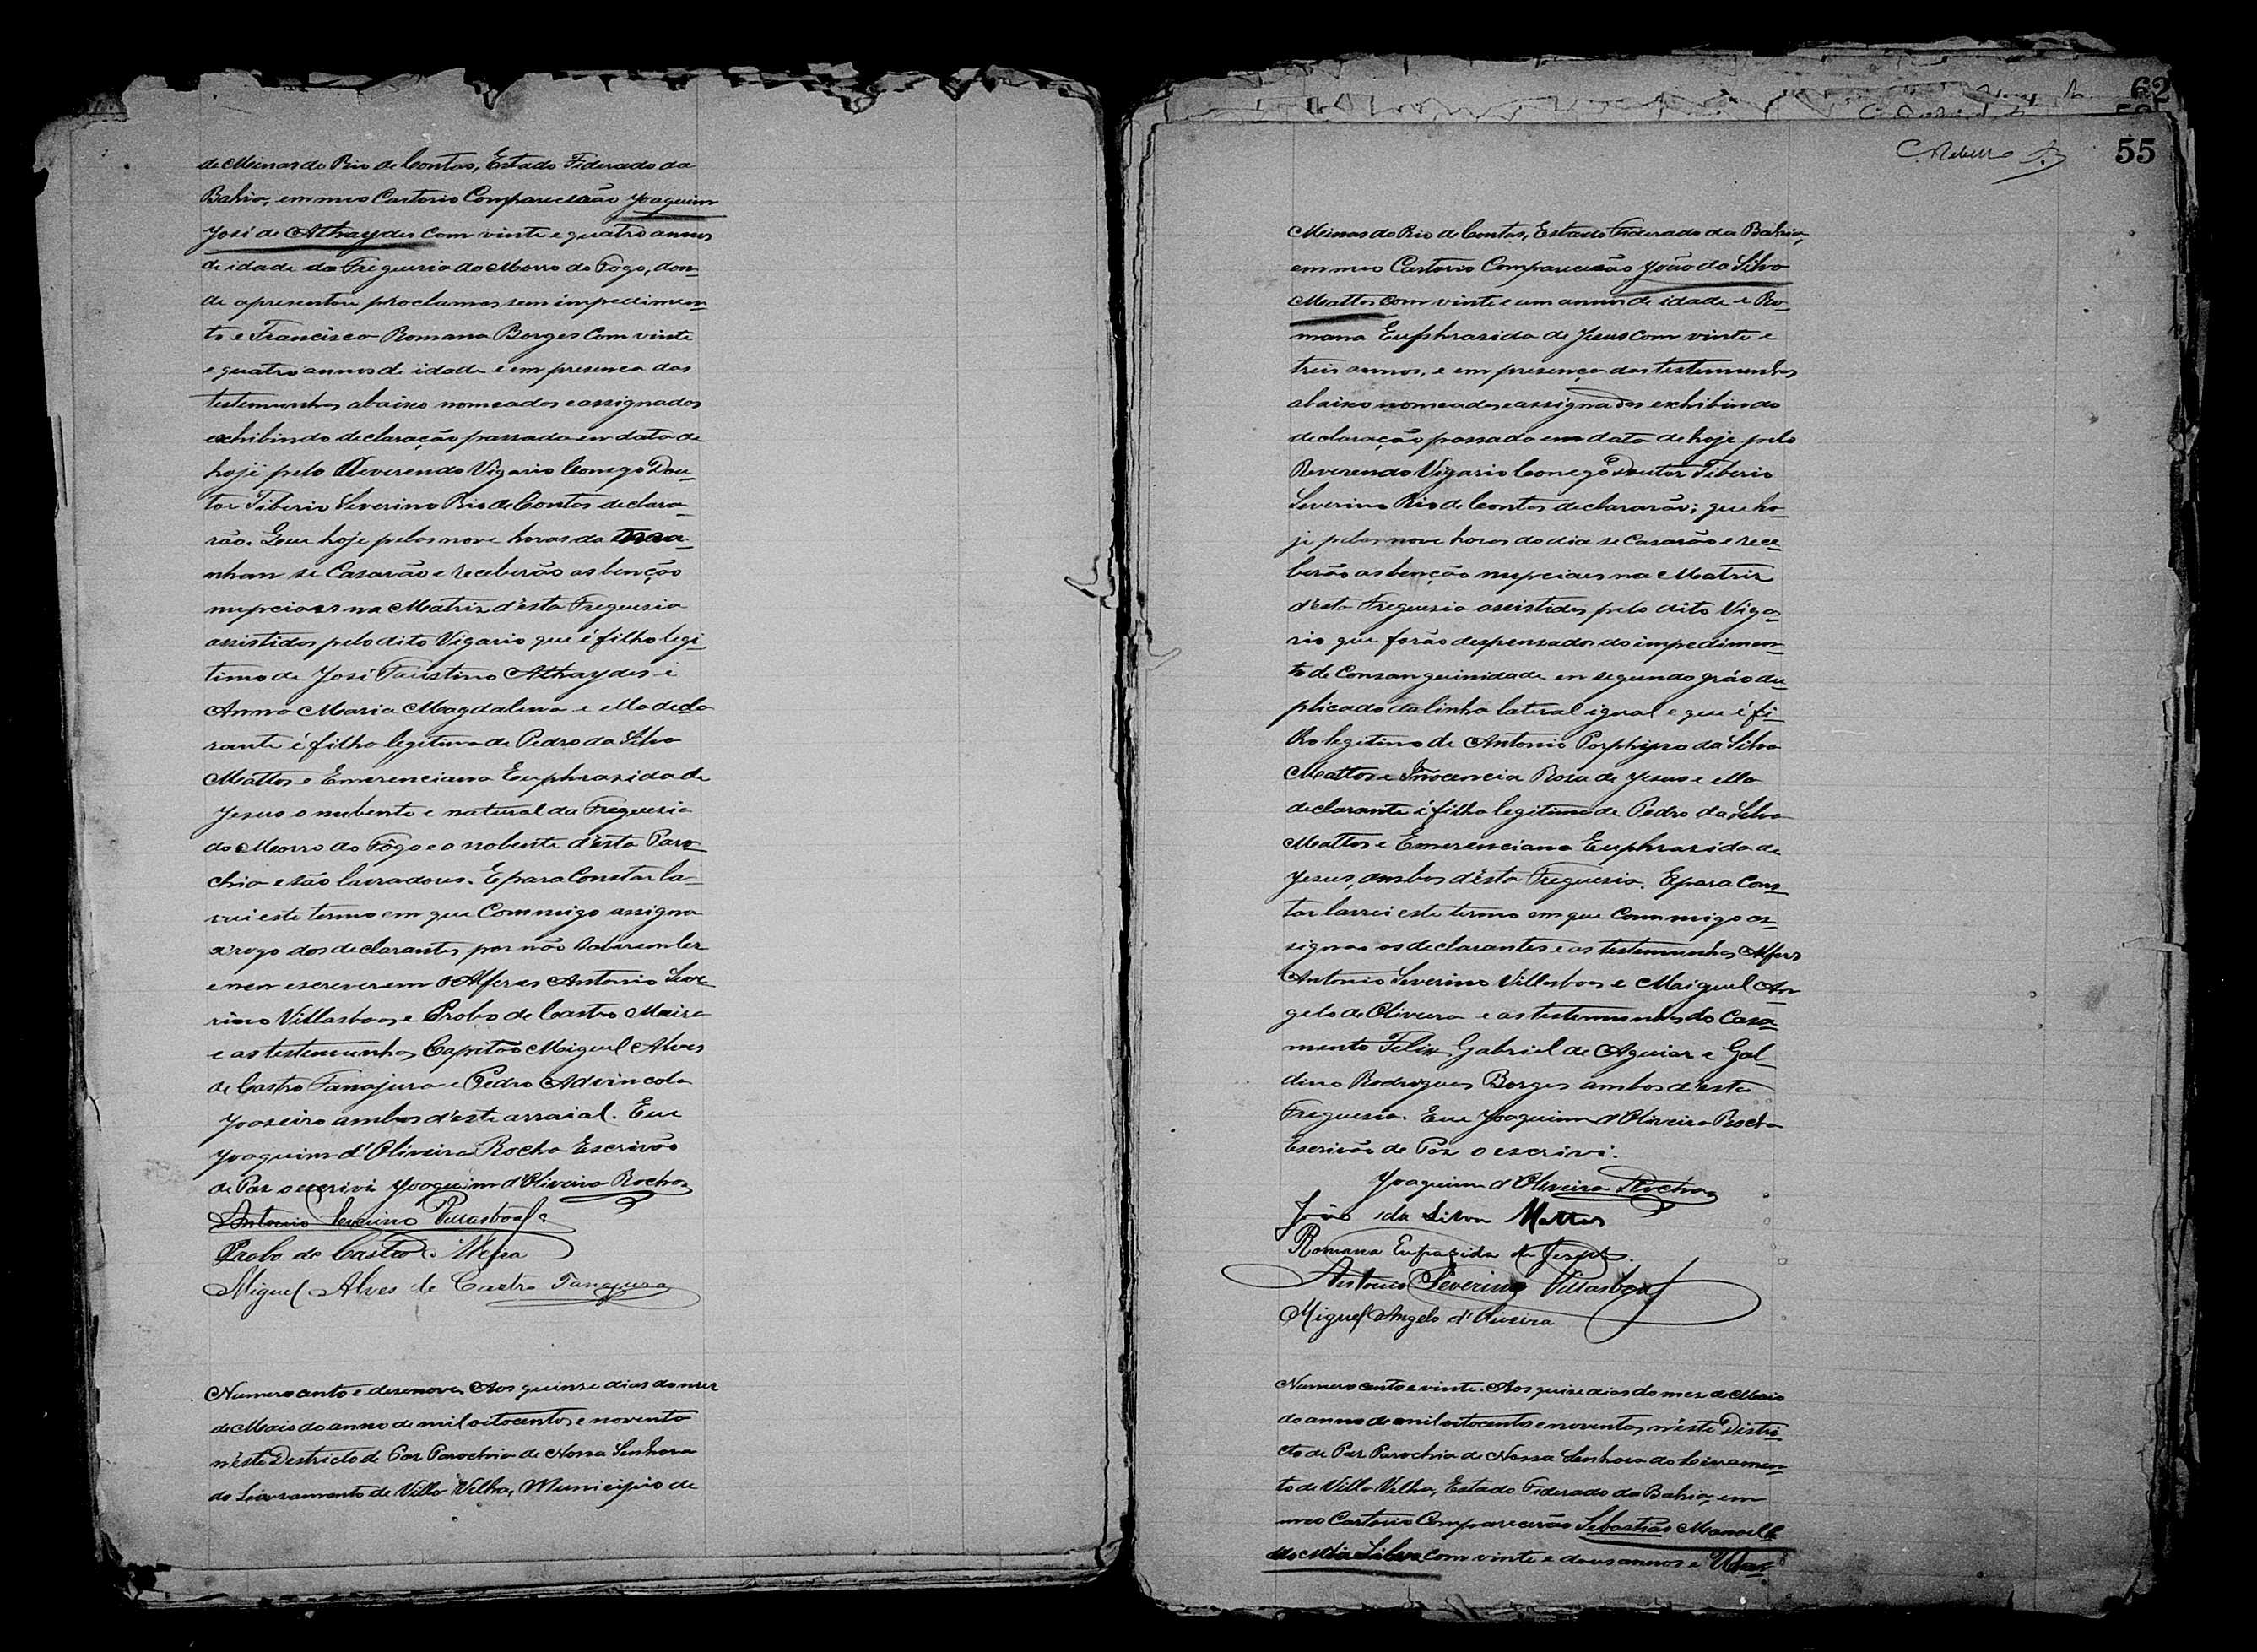 de Minas do Rio de Contas, Estado Federado da
Bahia, em meo Cartorio Comparecerão Joaquim
José de Athaydes com vinte e quatro annos
de idade da Freguesia do Morro do Fogo, don-
de apresentou proclamas sem impedimen-
to e Francisca Romana Borges com vinte
e quatro annos de idade e em presenca das
testemunhas abaixo nomeados e assignados
exhibindo declaração passada em data de
hoje pelo Reverendo Vigario Conego Dou-
tor Tiberio Severino Rio de Contas declara-
rão. Que hoje pelas nove horas da ma-
nham se Casarão e receberão as benção
nupciaes na Matriz d'esta Freguesia
assistidos pelo dito Vigario que é filho legi-
timo de José Faustino Athaydes e
Anna Maria Magdalena e ella decla
rante é filha legitima de Pedro da Silva
Mattos e Emerenciana Euphrasida de
Jesus o nubente e natural da Freguesia
do Morro do Fôgo e a nobente d'esta Paro-
chia e são lavradores. E para Constar la-
vrei este termo em que Commigo assigna
a rogo dos declarantes por não saberem ler
e nem escreverem o Alferes Antonio Seve-
rino Villasboas e Probo de Castro Meira
e as testemunhas Capitão Miguel Alves
de Castro Tanajura e Pedro Advincola
Joazeiro ambos d'este arraial. Eu
Joaquim d'Oliveira Rocha Escrivão
de Paz o escrivi Joaquim d'Oliveira Rocha
Antonio Severino Villasboas
Probo de Castro Meira
Miguel Alves de Castro Tanajura
Numero cento e desenove, Aos quinze dias do mez
de Maio do anno de mil oitocentos e noventa
n'éste Destricto de Paz Parochia de Nossa Senhora
do Livramento de Villa Velha, Municipio de
62
55
Minas do Rio de Contas, Estado Federado da Bahia,
em meo Cartorio Comparecerão João da Silva
Mattos com vinte e um annos de idade e Ro-
mana Euphrasida de Jesus com vinte e
treis annos, e em presença das testemunhas
abaixo nomeados e assignados exhibindo
declaração passada em data de hoje pelo
Reverendo Vigario Conego Doutor Tiberio
Severino Rio de Contas declararão; que ho-
je pelas nove horas do dia se Casarão e rece-
berão as benção nupciaes na Matriz
d'esta Freguesia assistidos pelo dito Viga-
rio que forão despensados do impedimen-
to de Consanguinidade em segundo gráo du-
plicado da linha lateral igual e que é fi-
lho legitimo de Antonio Porphiro da Silva
Mattos e Innocencia Rosa de Jesus e ella
declarante é filha legitima de Pedro da Silva
Mattos e Emerenciana Euphrasida de
Jesus, ambos d'ésta Freguesia. E para Cons-
tar lavrei este termo em que Commigo as-
signão os declarantes e as testemunhas Alferes
Antonio Severino Villasboas e Maiguel An-
gelo de Oliveira e as testemunhas do Casa-
mento Felix Gabriel de Aguiar e Gal-
dino Rodrigues Borges ambos d'esta
Freguesia. Eu Joaquim d'Oliveira Rocha
Escrivão de Paz o escrivi.
Joaquim d'Oliveira Rocha
João da Silva Mattos
Romana Eufrazida de Jesus
Antonio Severino Villasboas
Miguel Angelo d'Oliveira
Numero cento e vinte. Aos quise dias do mez de Maio
do anno de mil oitocentos e noventa, n'éste Distri-
cto de Paz Parochia de Nossa Senhora do Livramen-
to de Villa Velha, Estado Federado da Bahia, em
meo Cartorio Comparecerão Sebastião Manoel
da Silva com vinte e dous annos e